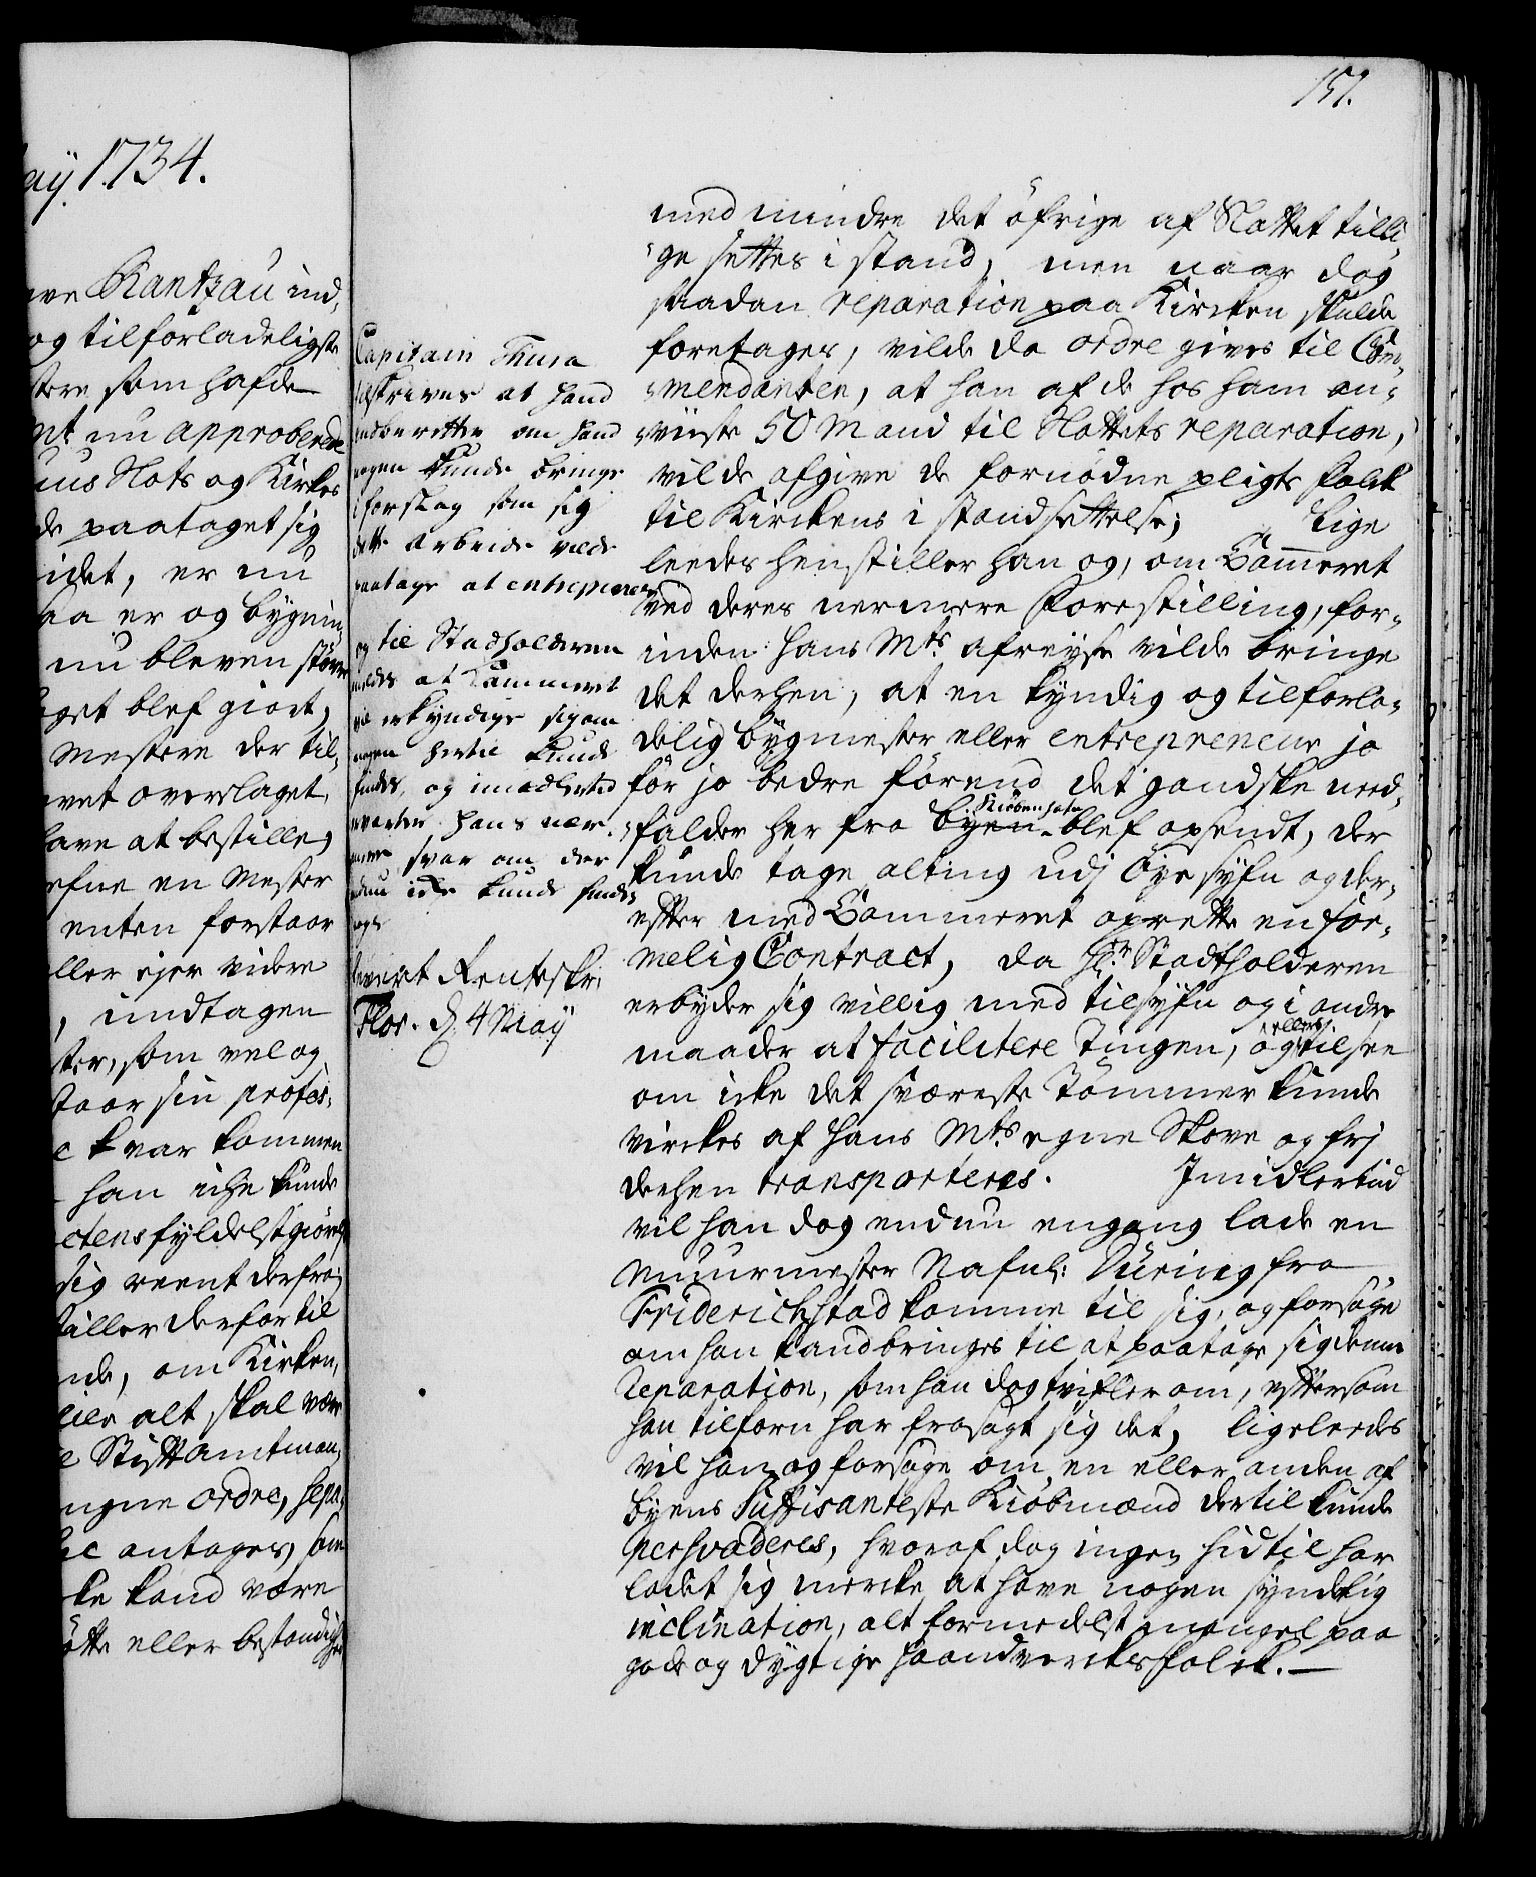 151.
aÿ 1734.
ave Rantzau ind,
og tilforladeligste
stere som hafde
nt nu approberede
uus Slots og Kirkes
de paataget sig
idet, er nu
aa er og bygnin,
nu bleven større
get blef giort,
Mestere der til,
vet overslaget,
have at bestille,
efne en Mester
enten forstaar
ller ejer videre
, undtagen
ster, som vel og
staar sin profes,
e k var kommen
han iche kunde
ctens fyldelstgiørels
sig reent derfra,
stiller derfor til
nde, om Kirken,
eller alt skal være
e Stiftamtman,
ngne ordre, sepa,
antages, som
ke kand være
øtte eller bestandighed
Capitain Thura
tilskrives at hand
indberetter om hand
nogen kunde bringe
i forslag som sig
dette arbeide vilde
paatage at entreprenere
og til Stadholderen
meldes at Kammeret
vil erkyndige sig om
nogen hertil kunde
findes, og imidlertid
venter hans nær,
mere svar om der
endnu icke kunde findes
nogen
leveret Renteskr:
Flor. d. 4 Maÿ
med mindre det öfrige af Slottet tilli,
ge settes i stand, men naar dog
saadan reparation paa Kircken skulde
foretages, vilde da ordre gives til Com,
mendanten, at han af de hos ham an,
viiste 50 Mand til Slottets reparation,
vilde afgive de fornødne pligts folck
til Kirckens i standsettelse; Lige
leedes henstiller han og, om Cammeret
ved deres nermere Forestilling, for,
inden hans Mts afreÿse vilde bringe
det derhen, at en kyndig og tilforla,
delig bÿgmester eller entrepreneur jo
för jo bedre förend det gandske ned,
falder her fra byen Kiøbenhafn blef opsendt, der
kunde tage alting udj Öÿesyfn og der,
efter med Cammeret oprette en för,
melig Contract, da Hr Stadtholderen
erbÿder sig villig med tilsÿfn og i andre
maader at facilitere Tingen, og ellers tilsee
om icke det sværeste Tömmer kunde
virckes af hans Mts egne Skove og frj
derhen transporteres. Imidlertiid
vil han dog endnu engang lade en
Muurmester Nafnl: Düring fra
Friderichstad komme til sig, og forsöge
om han kand bringes til at paatage sig denne
Reparation, som han dog tvifler om, eftersom
han tilforn har frasagt sig det, ligeleedes
vil han og forsøge om en eller anden af
byens Suffisanteste Kiøbmænd dertil kunde
persvaderes, hvoraf dog ingen hidtil har
ladet sig mercke at have nogen synderlig
inclination, alt formedelst mangel paa
gode og dygtige haandvercksfolck.—